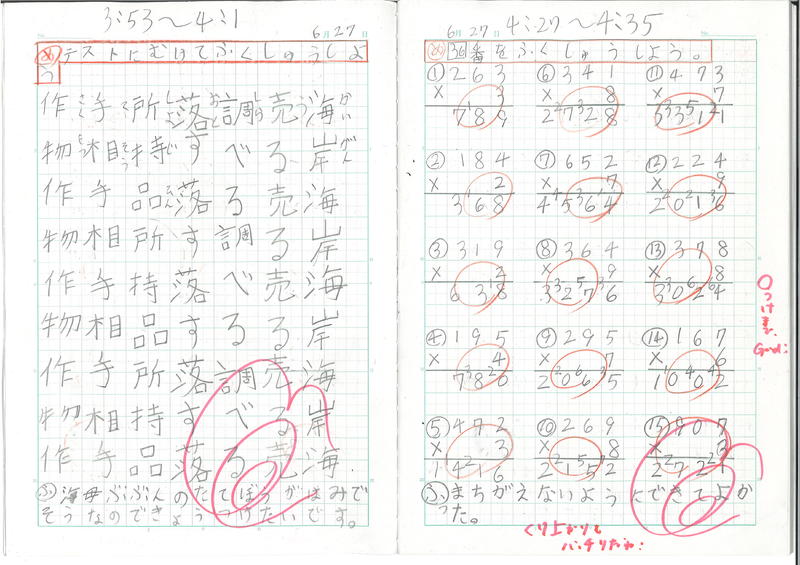 3:53〜4:1
6月27日
め テストにむけてふくしゅうしよ
う
作手所落調売海
物相持すべる岸
作手品落る売海
物相所す調る岸
作手持落べ売海
物相品するる岸
作手所落調売海
物相持すべる岸
作手品落る売海
ふ 海母ぶぶんのたてぼうがはみで
そうなのできょうつけたいです。
6月27日 4:27〜4:35
め 36番をふくしゅうしよう。
① 263 ⑥ 341 ⑪ 473
× 3 × 8 × 7
789 2728 3311
② 184 ⑦ 652 ⑫ 224
× 2 × 7 × 9
368 4564 2016
③ 319 ⑧ 364 ⑬ 378
× 2 × 9 × 8
638 3276 3024
④ 195 ⑨ 295 ⑭ 167
× 4 × 7 × 6
780 2065 1002
⑤ 472 ⑩ 269 ⑮ 907
× 3 × 8 × 3
1416 2152 2721
ふ まちがえないようにできてよか
った。
くり上がりも
バッチリだね!
○つけ
Good!